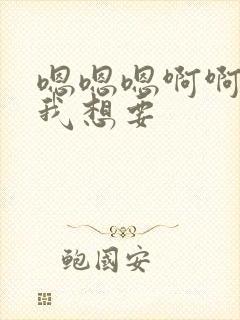 嗯嗯嗯啊啊
我想要
鲍国安